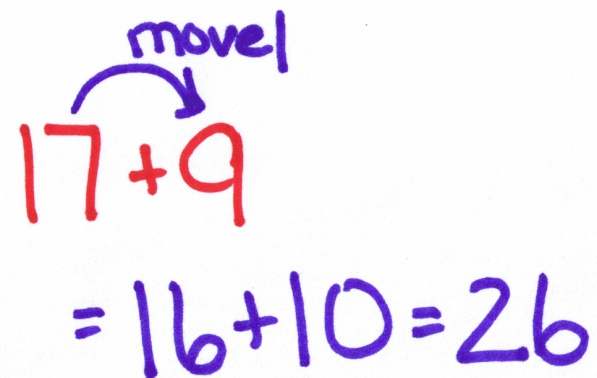 move 1
17 + 9
= 16 + 10 = 26